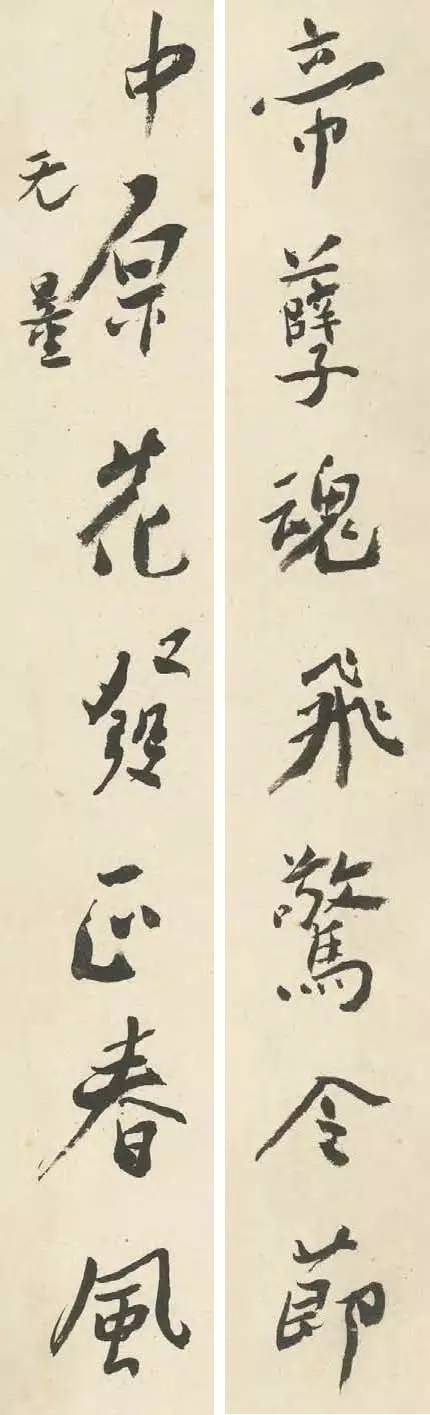 帝孽魂飛驚令節
中原花發正春風
无量